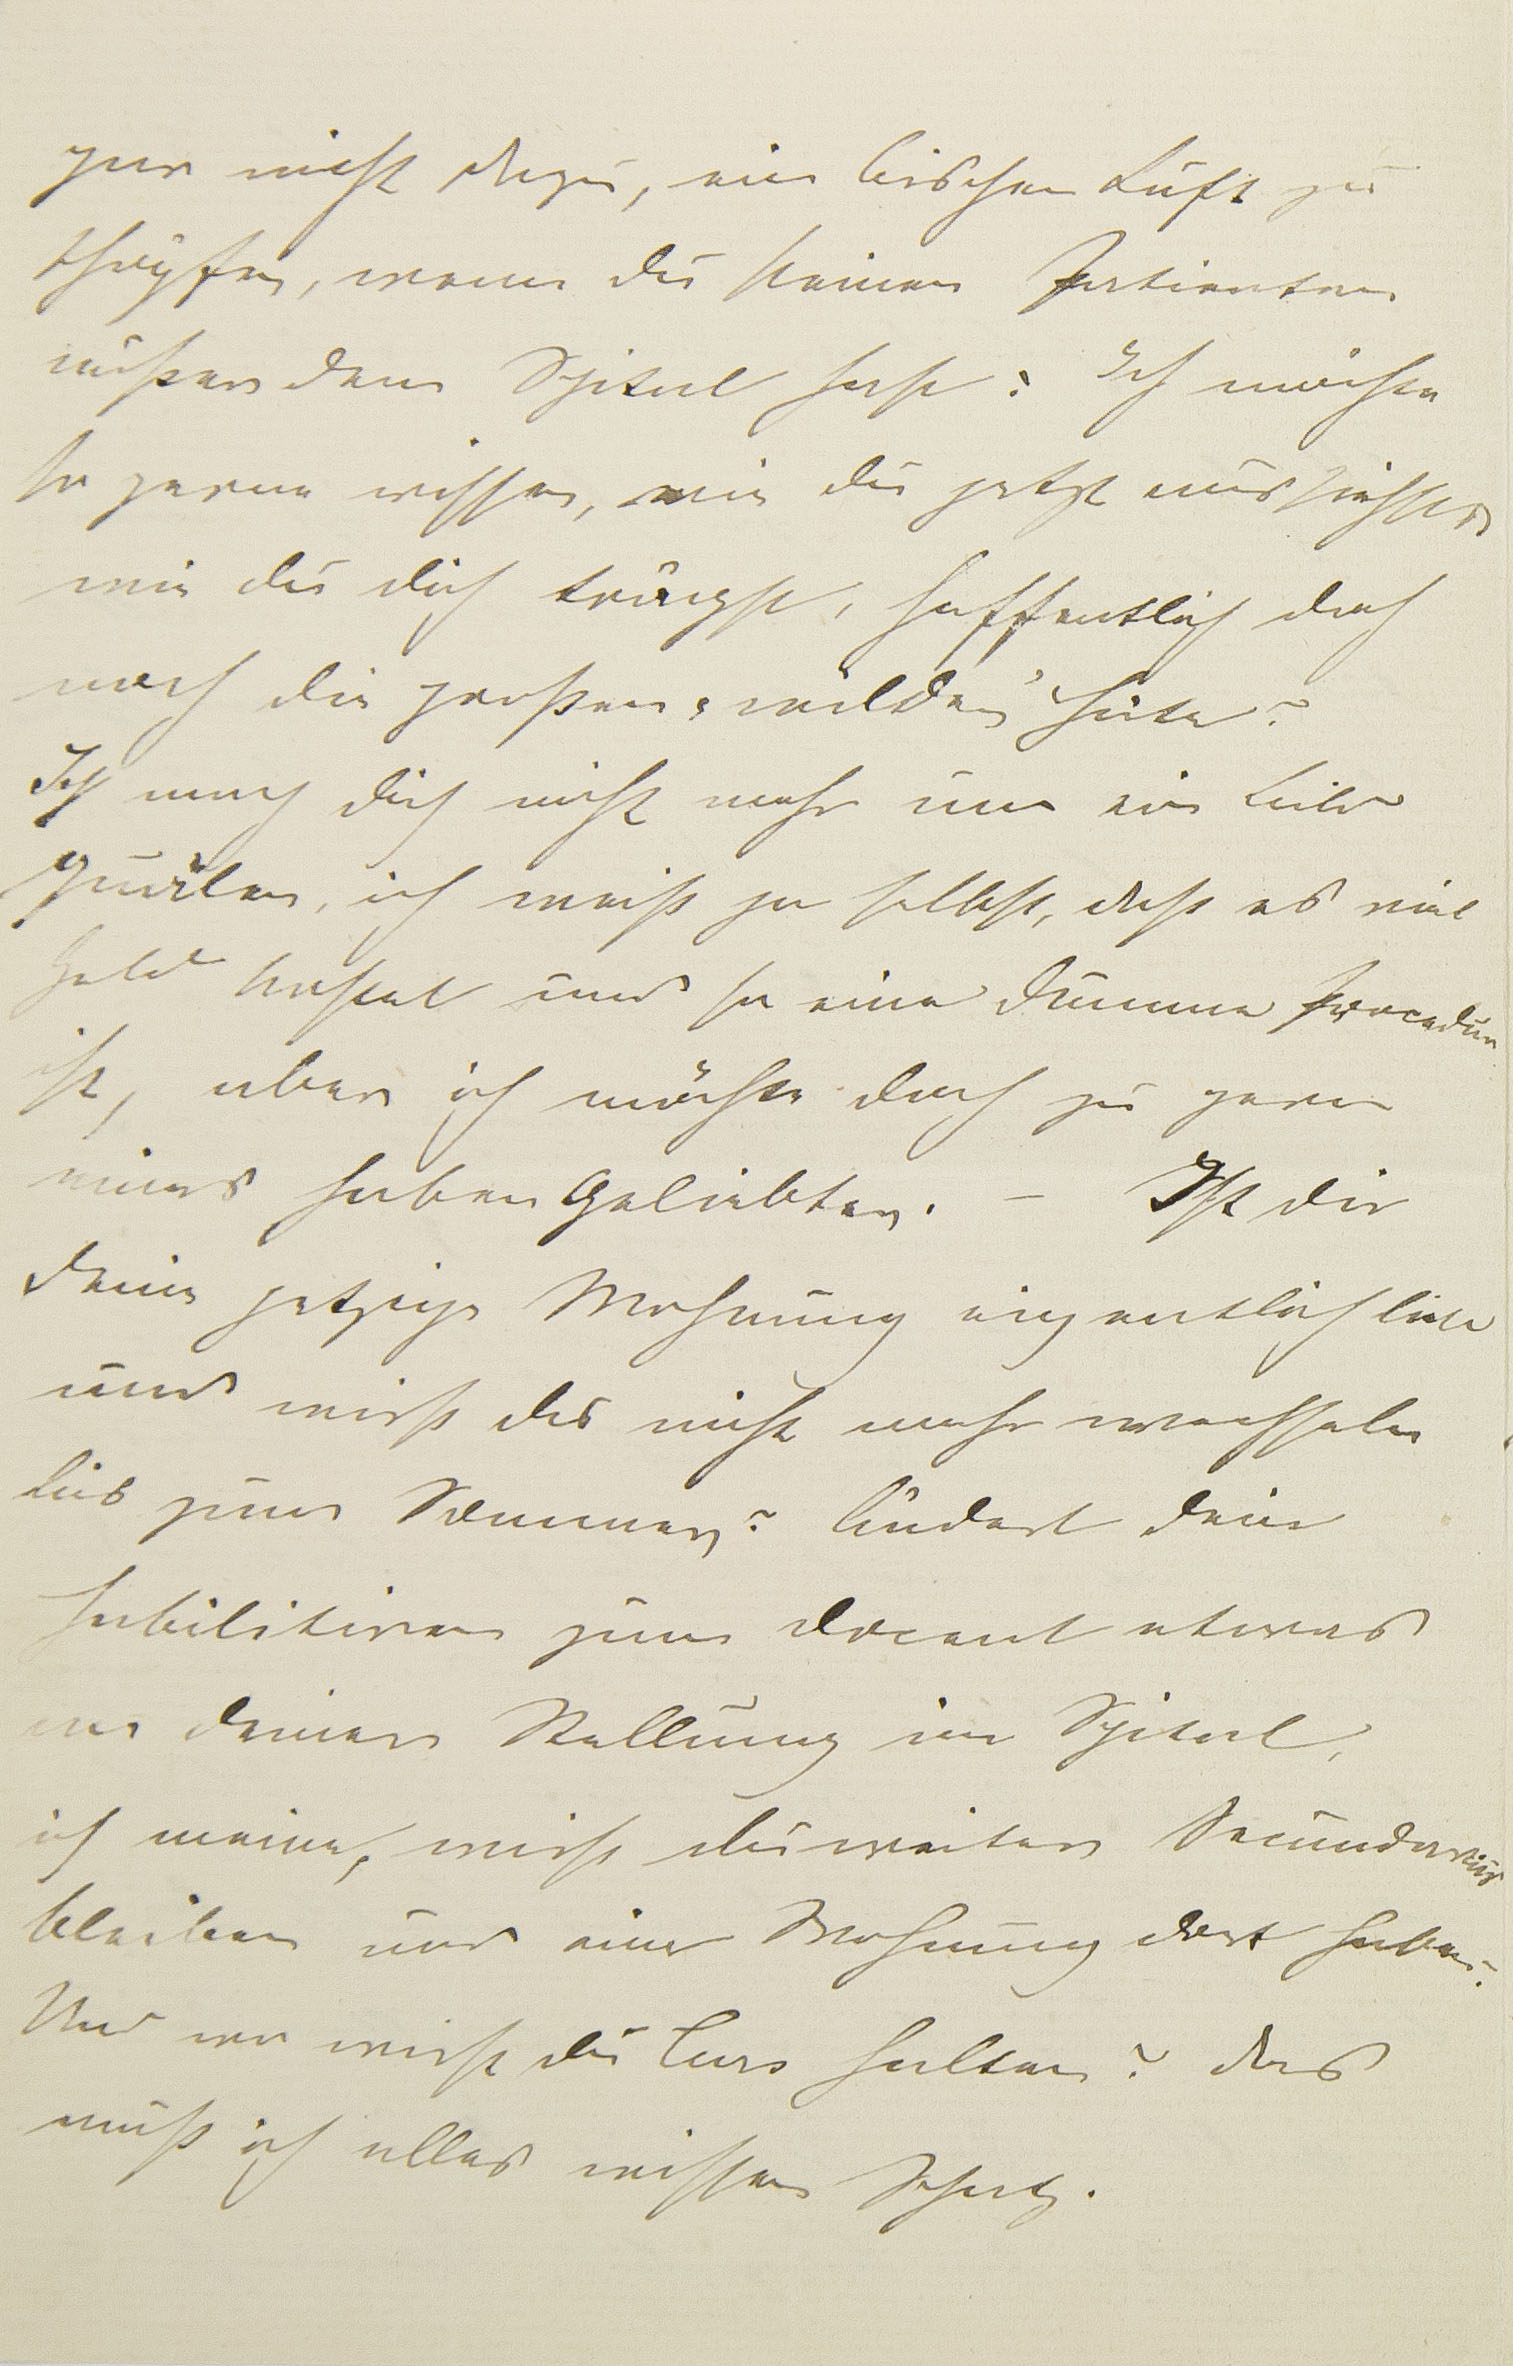 gar nicht dazu, ein bischen Luft zu
schöpfen, wenn du keinen Patienten
außer dem Spital hast? Ich möchte
so gerne wissen, wie du jetzt aussiehst,
wie du dich trägst, hoffentlich doch
noch die großen „wilden“ Hüte?
Ich mag dich nicht mehr um ein Bild
quälen, ich weiß ja selbst, daß es viel
Geld kostet und so eine dumme Procedur
ist, aber ich möchte doch zu gern
eines haben Geliebter. – Ist dir
deine jetzige Wohnung eigentlich lieb
und wirst du nicht mehr wechseln
bis zum Sommer? Ändert dein
habilitiren zum Docent etwas
an deiner Stellung im Spital,
ich meine, wirst du weiter Secundarius
bleiben und eine Wohnung dort haben?
Und wo wirst du Curs halten? Das
muß ich alles wissen Schatz.